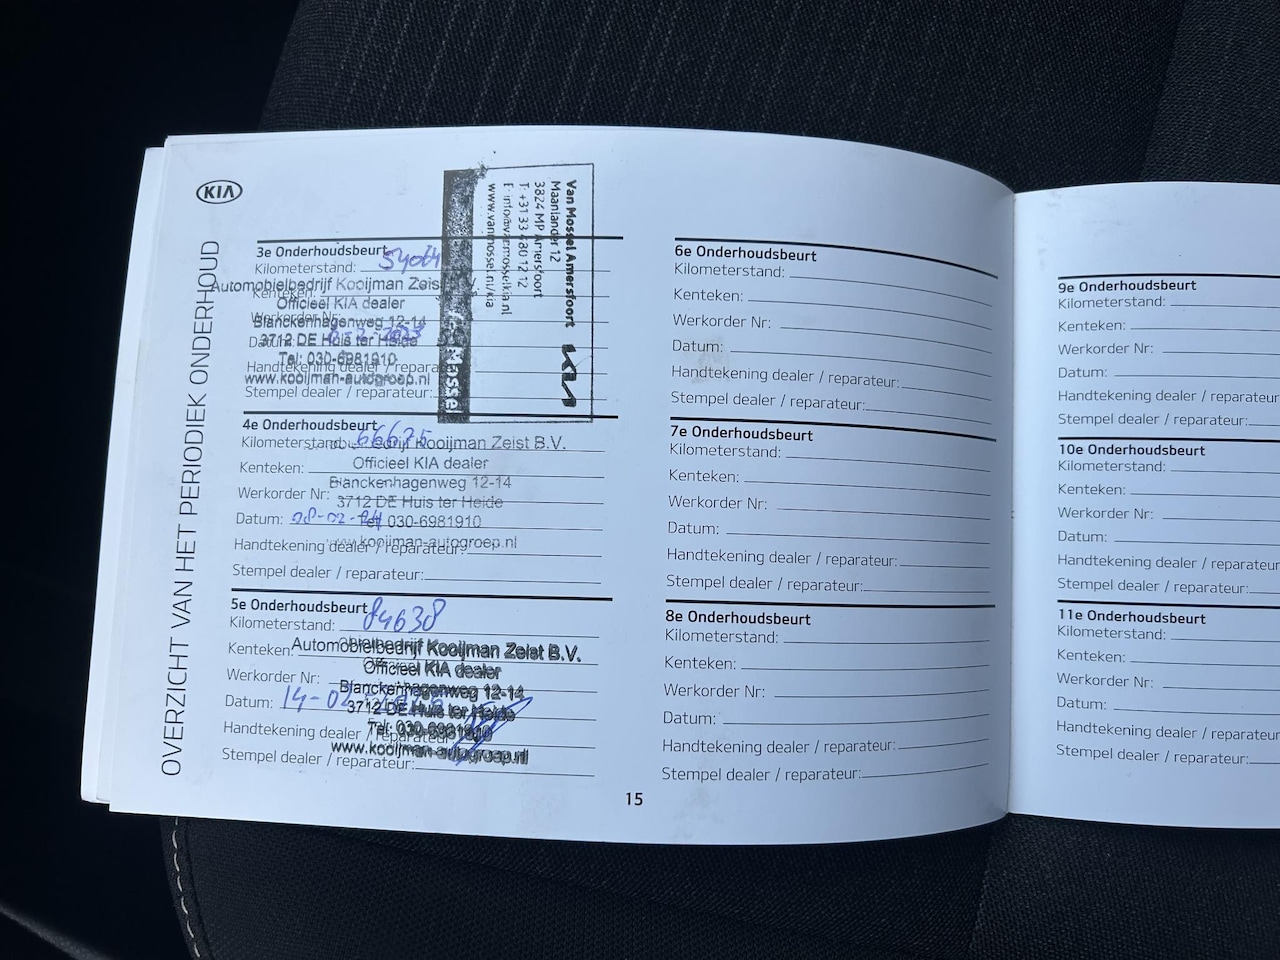 KIA
OVERZICHT VAN HET PERIODIEK ONDERHOUD
Van Mossel Amersfoort
Maanlander 12
3824 MP Amersfoort
T: +31 33 480 12 12
E: info@vanmosselkia.nl
www.vanmossel.nl/kia
KIA
3e Onderhoudsbeurt
Kilometerstand:
Automobielbedrijf Kooijman Zeist B.V.
Kenteken:
Officieel KIA dealer
Werkorder Nr:
Blanckenhagenweg 12-14
Datum:
3712 DE Huis ter Heide
Tel: 030-6981910
Handtekening dealer / reparateur:
www.kooijman-autogroep.nl
Stempel dealer / reparateur:
4e Onderhoudsbeurt
Kilometerstand: 66675
Kooijman Zeist B.V.
Kenteken:
Officieel KIA dealer
Blanckenhagenweg 12-14
Werkorder Nr:
3712 DE Huis ter Heide
Datum: 08-02-24
Tel: 030-6981910
Handtekening dealer / reparateur:
www.kooijman-autogroep.nl
Stempel dealer / reparateur:
5e Onderhoudsbeurt
Kilometerstand: 84638
Kenteken:
Automobielbedrijf Kooijman Zeist B.V.
Officieel KIA dealer
Werkorder Nr:
Blanckenhagenweg 12-14
Datum: 14-02
3712 DE Huis ter Heide
Handtekening dealer / reparateur:
Tel: 030-6981910
www.kooijman-autogroep.nl
Stempel dealer / reparateur:
15
6e Onderhoudsbeurt
Kilometerstand:
Kenteken:
Werkorder Nr:
Datum:
Handtekening dealer / reparateur:
Stempel dealer / reparateur:
7e Onderhoudsbeurt
Kilometerstand:
Kenteken:
Werkorder Nr:
Datum:
Handtekening dealer / reparateur:
Stempel dealer / reparateur:
8e Onderhoudsbeurt
Kilometerstand:
Kenteken:
Werkorder Nr:
Datum:
Handtekening dealer / reparateur:
Stempel dealer / reparateur:
9e Onderhoudsbeurt
Kilometerstand:
Kenteken:
Werkorder Nr:
Datum:
Handtekening dealer / reparateur
Stempel dealer / reparateur:
10e Onderhoudsbeurt
Kilometerstand:
Kenteken:
Werkorder Nr:
Datum:
Handtekening dealer / reparateur
Stempel dealer / reparateur:
11e Onderhoudsbeurt
Kilometerstand:
Kenteken:
Werkorder Nr:
Datum:
Handtekening dealer / reparateur
Stempel dealer / reparateur: